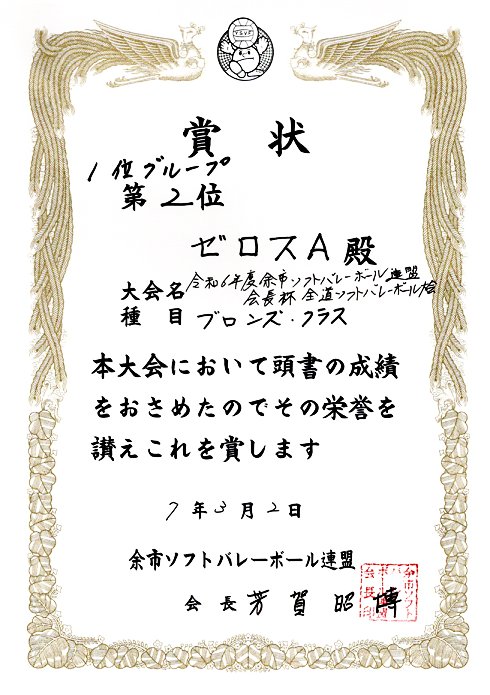 賞状
1位グループ
第2位
ゼロスA殿
大会名 令和6年度余市ソフトバレーボール連盟
会長杯 全道ソフトバレーボール大会
種目 ブロンズ・クラス
本大会において頭書の成績
をおさめたのでその栄誉を
讃えこれを賞します
7年3月2日
余市ソフトバレーボール連盟
会長 芳賀昭博